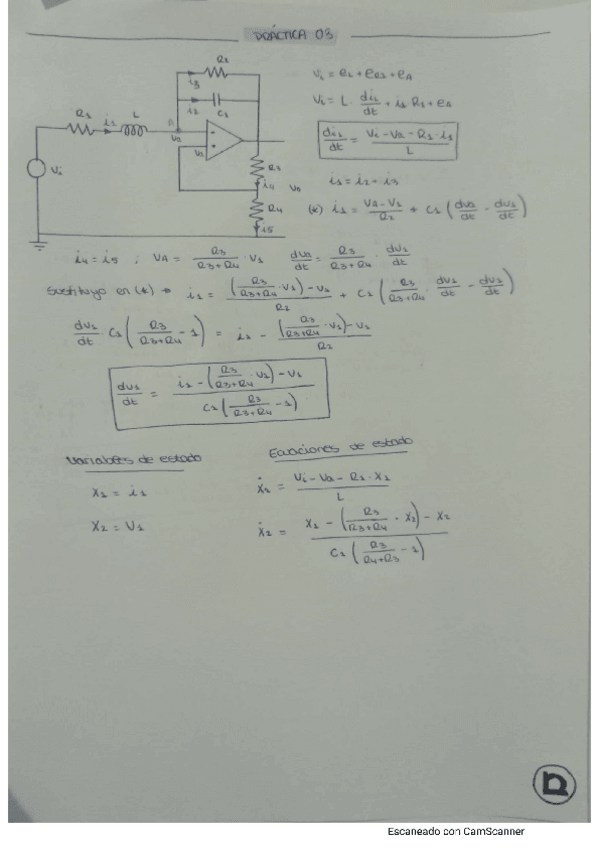 PRÁCTICA 03
R2
i3
i2
C1
R1
i1
L
A
Va
Va
Vi
R3
i4
Vo
R4
i5
Vi = eL + eR1 + eA
Vi = L · di1/dt + i1 · R1 + eA
di1/dt = (Vi - Va - R1 · i1)/L
i1 = i2 + i3
(*) i1 = (VA - V1)/R2 + C1 (dva/dt - dv1/dt)
i4 = i5 ; VA = R3/(R3 + R4) · V1 dva/dt = R3/(R3+R4) · dv1/dt
Sustituyo en (*) → i1 = ((R3/(R3+R4) · V1) - V1)/R2 + C1 (R3/(R3+R4) · dv1/dt - dv1/dt)
dv1/dt · C1 (R3/(R3+R4) - 1) = i1 - ((R3/(R3+R4) · V1) - V1)/R2
dv1/dt = (i1 - (R3/(R3+R4) · V1) - V1)/(C1 (R3/(R3+R4) - 1))
Variables de estado
Ecuaciones de estado
X1 = i1
Ẋ1 = (Vi - Va - R1 · X1)/L
X2 = V1
Ẋ2 = (X1 - (R3/(R3+R4) · X2) - X2)/(C1 (R3/(R4+R3) - 1))
Escaneado con CamScanner